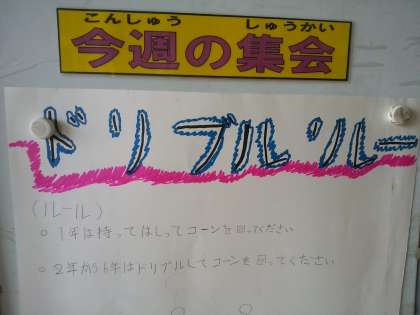 こんしゅう しゅうかい
今週の集会
ドリブルリレー
(ルール)
○ 1年は持ってはしってコーンを回ってください
○ 2年から6年はドリブルしてコーンを回ってください